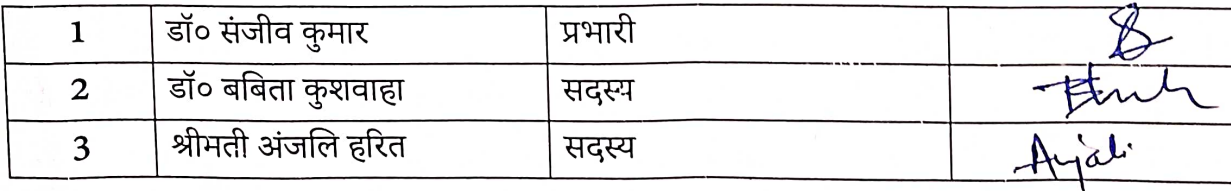 1 डॉ० संजीव कुमार प्रभारी
2 डॉ० बबिता कुशवाहा सदस्य
3 श्रीमती अंजलि हरित सदस्य Anjali